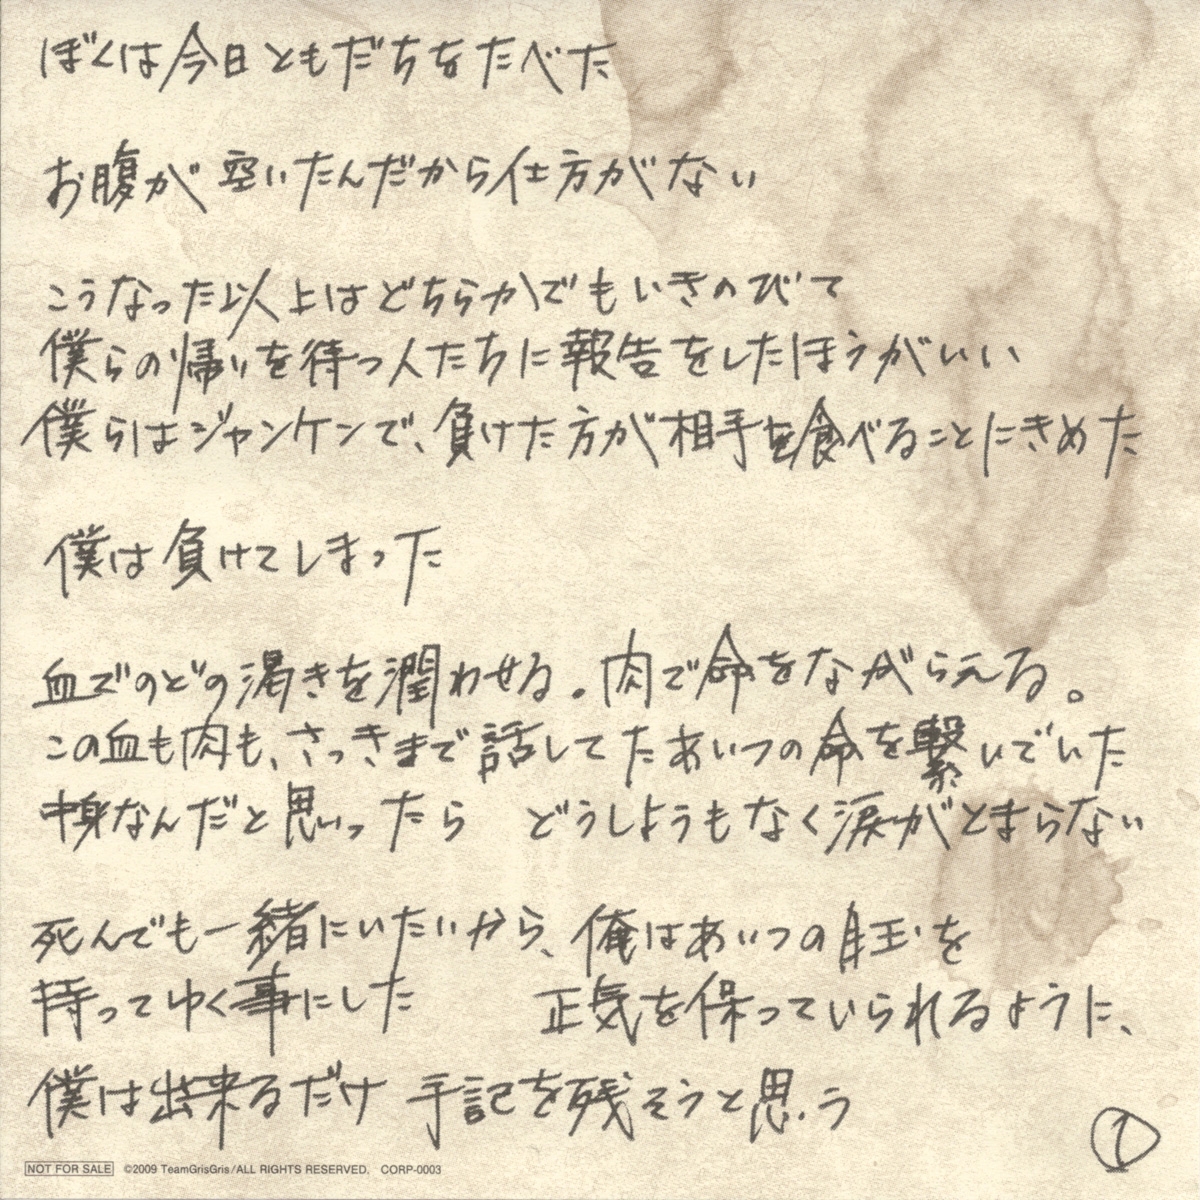 ぼくは今日ともだちをたべた
お腹が空いたんだから仕方がない
こうなった以上はどちらかでもいきのびて
僕らの帰りを待つ人たちに報告をしたほうがいい
僕らはジャンケンで、負けた方が相手を食べることにきめた
僕は負けてしまった
血でのどの渇きを潤わせる。肉で命をながらえる。
この血も肉も、さっきまで話してたあいつの命を繋いでいた
中身なんだと思ったら どうしようもなく涙がとまらない
死んでも一緒にいたいから、俺はあいつの目玉を
持ってゆく事にした 正気を保っていられるように、
僕は出来るだけ 手記を残そうと思う
①
NOT FOR SALE ©2009 TeamGrisGris/ALL RIGHTS RESERVED. CORP-0003